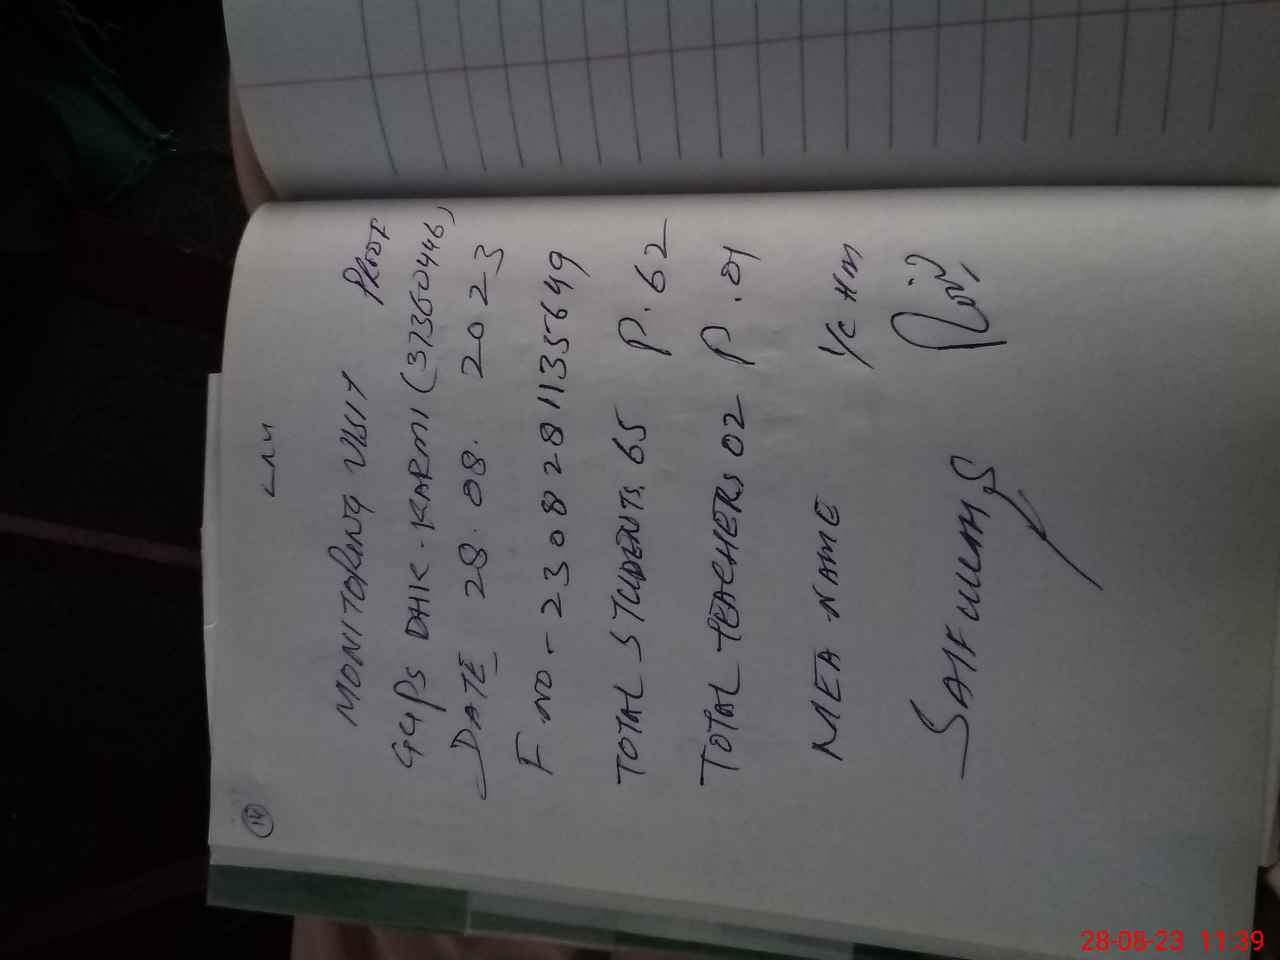 14
MONITORING VISIT PROOF
GGPS DHK-KARMI (37360446)
DATE 28.08.2023
F NO-2308281135649
TOTAL STUDENTS. 65 P. 62
TOTAL TEACHERS 02 P. 01
MEA NAME I/C HM
28-08-23 11:39